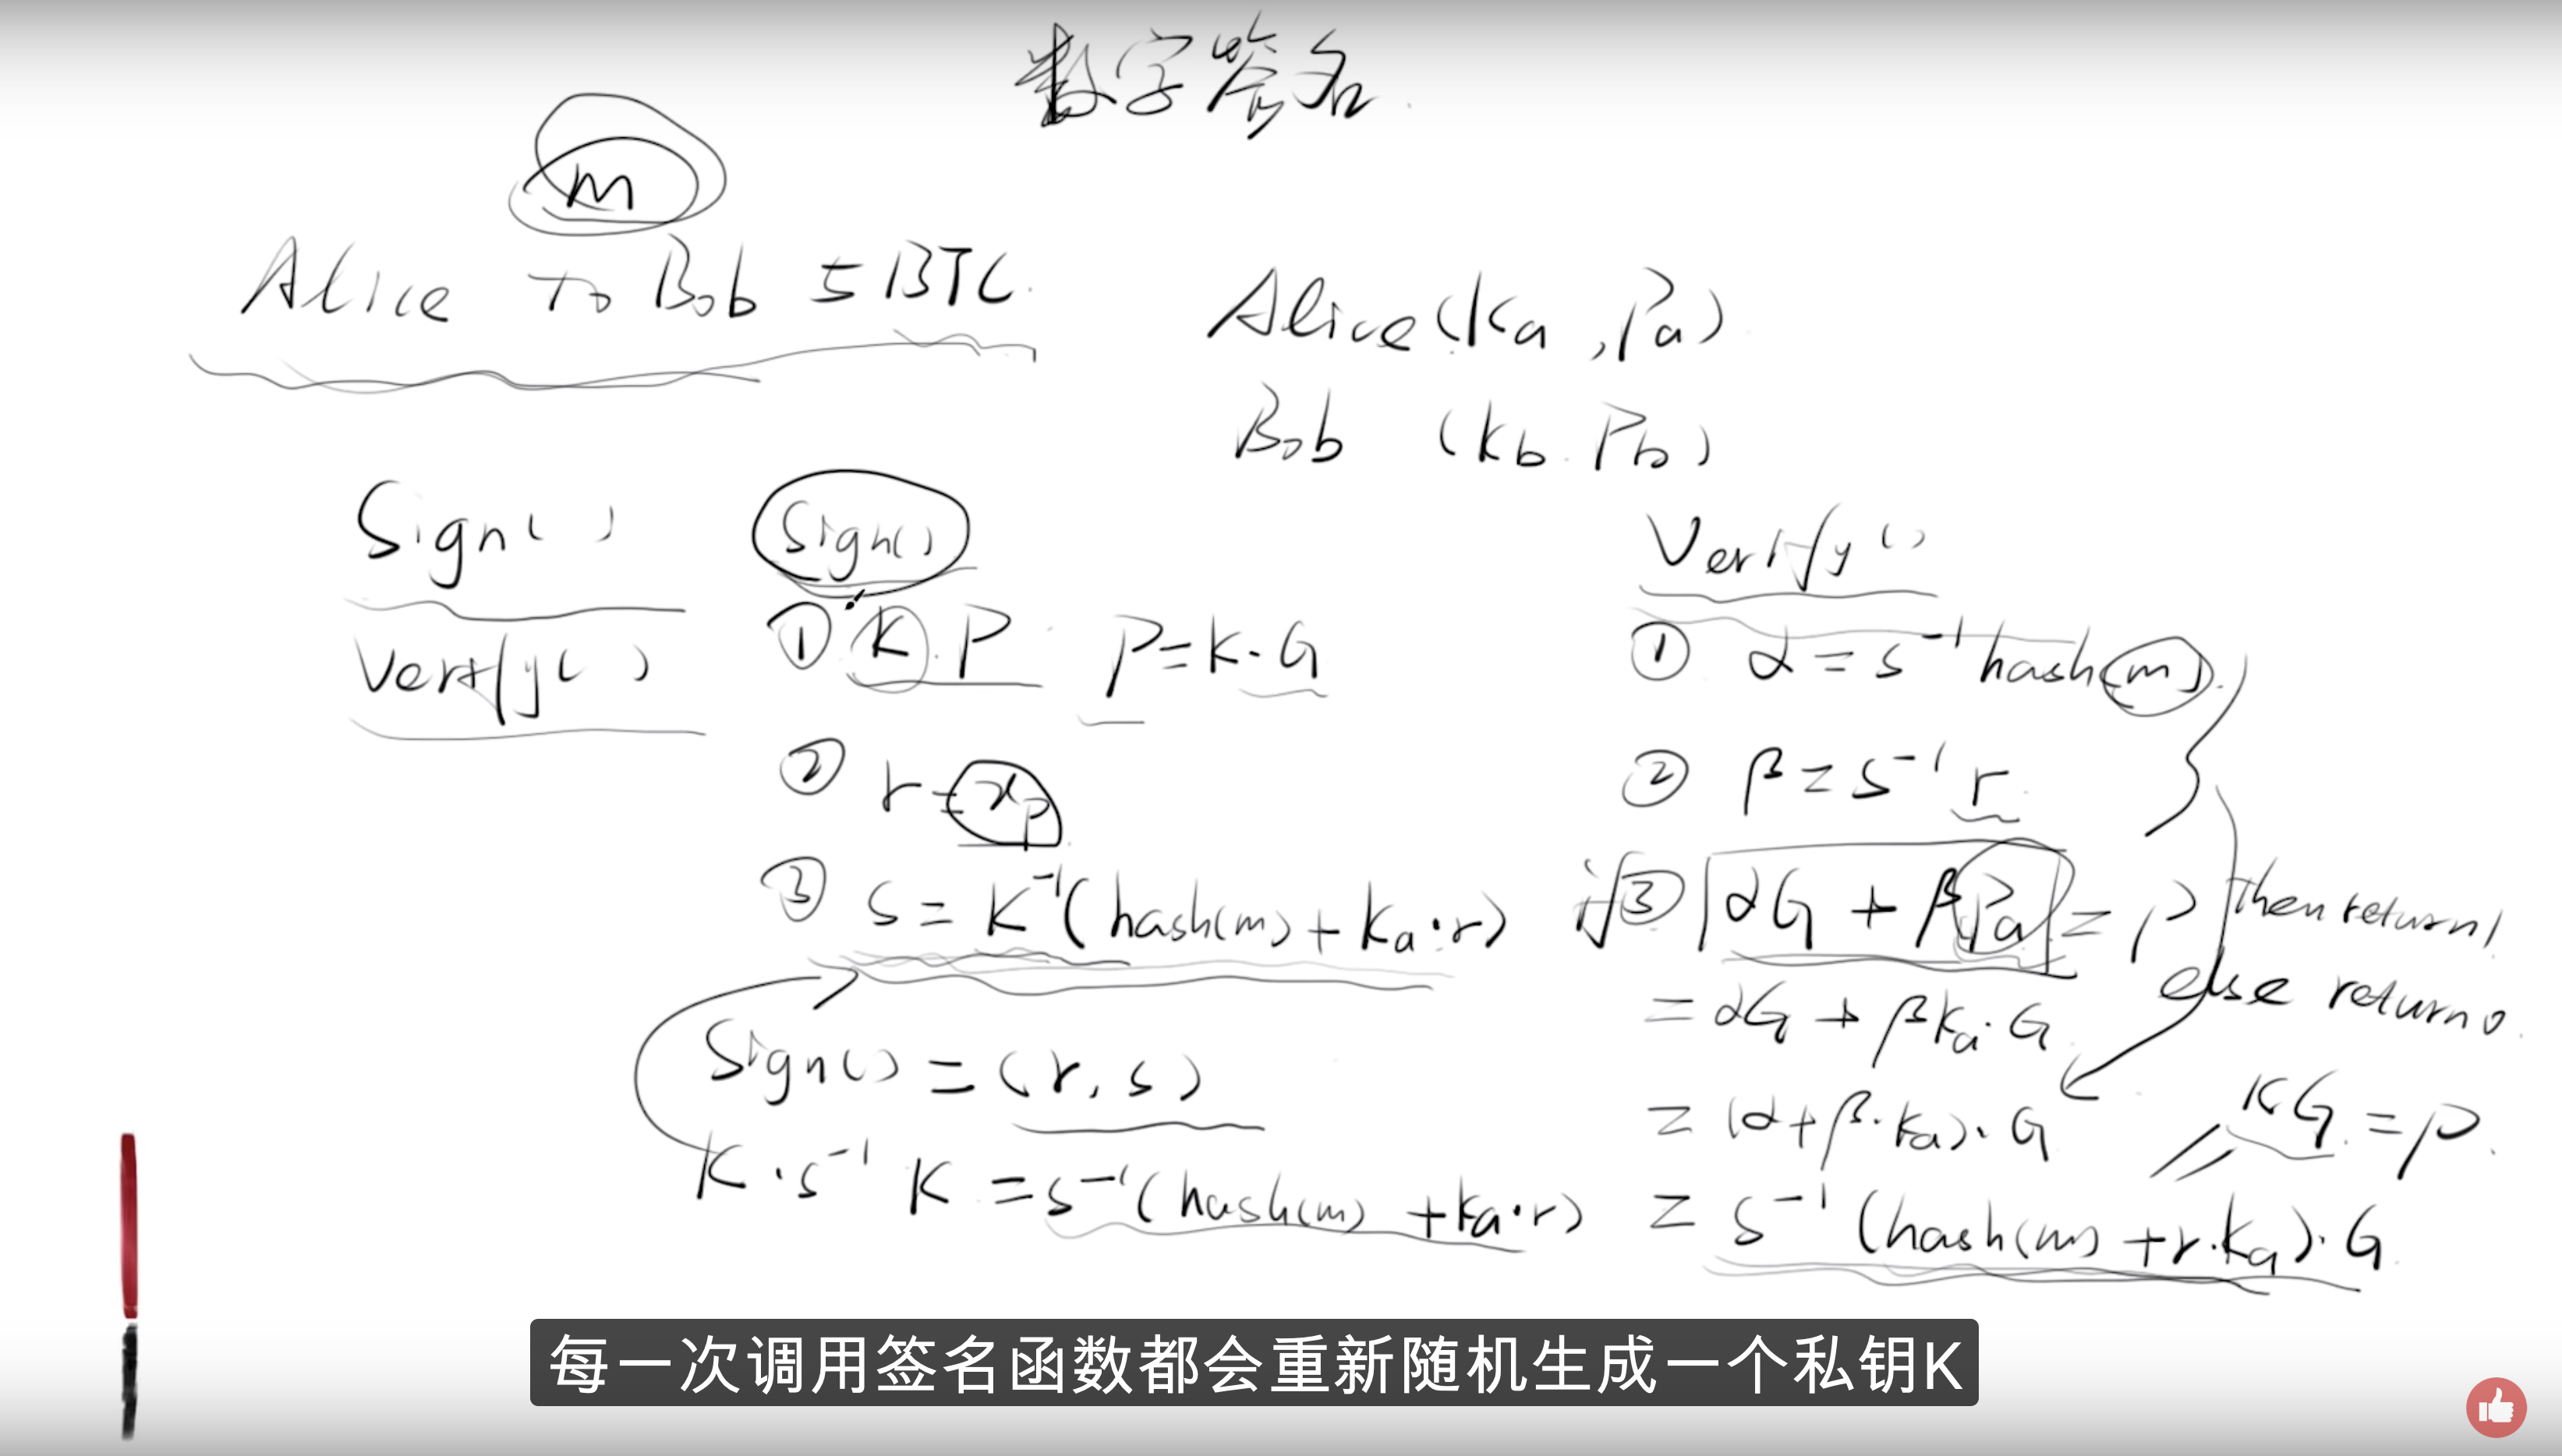 数字签名
m
Alice To Bob 5 BTC.
Alice (Ka, Pa)
Bob (Kb. Pb)
Sign()
Verify()
Sign()
① K. P P = K·G
② r = xp
③ s = K⁻¹(hash(m) + Ka·r)
Sign() = (r, s)
K·s⁻¹ K = s⁻¹(hash(m) + Ka·r)
Verify()
① α = s⁻¹hash(m).
② β = s⁻¹ r.
if ③ αG + βPa = P then return 1.
else return 0.
= αG + βKa·G
= (α+β·Ka)·G
KG = P.
= s⁻¹(hash(m) + r·Ka)·G.
每一次调用签名函数都会重新随机生成一个私钥K